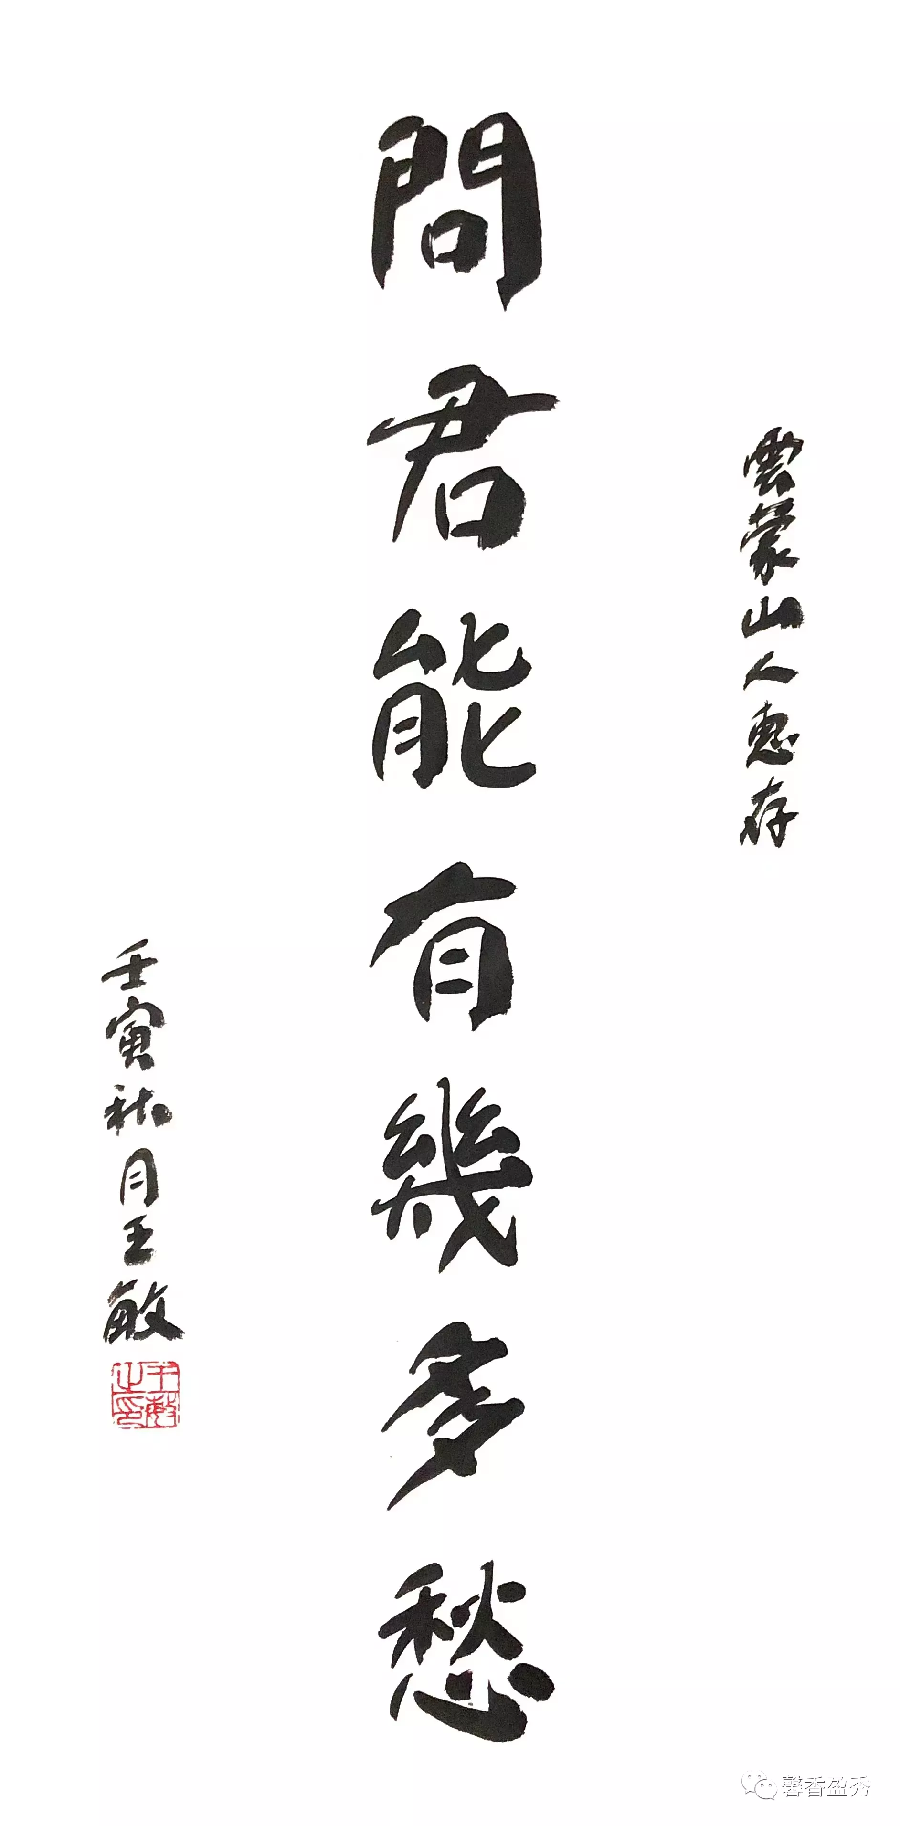 雲蒙山人惠存
問君能有幾多愁
壬寅秋月王敏
王敏之印
馨香盈秀